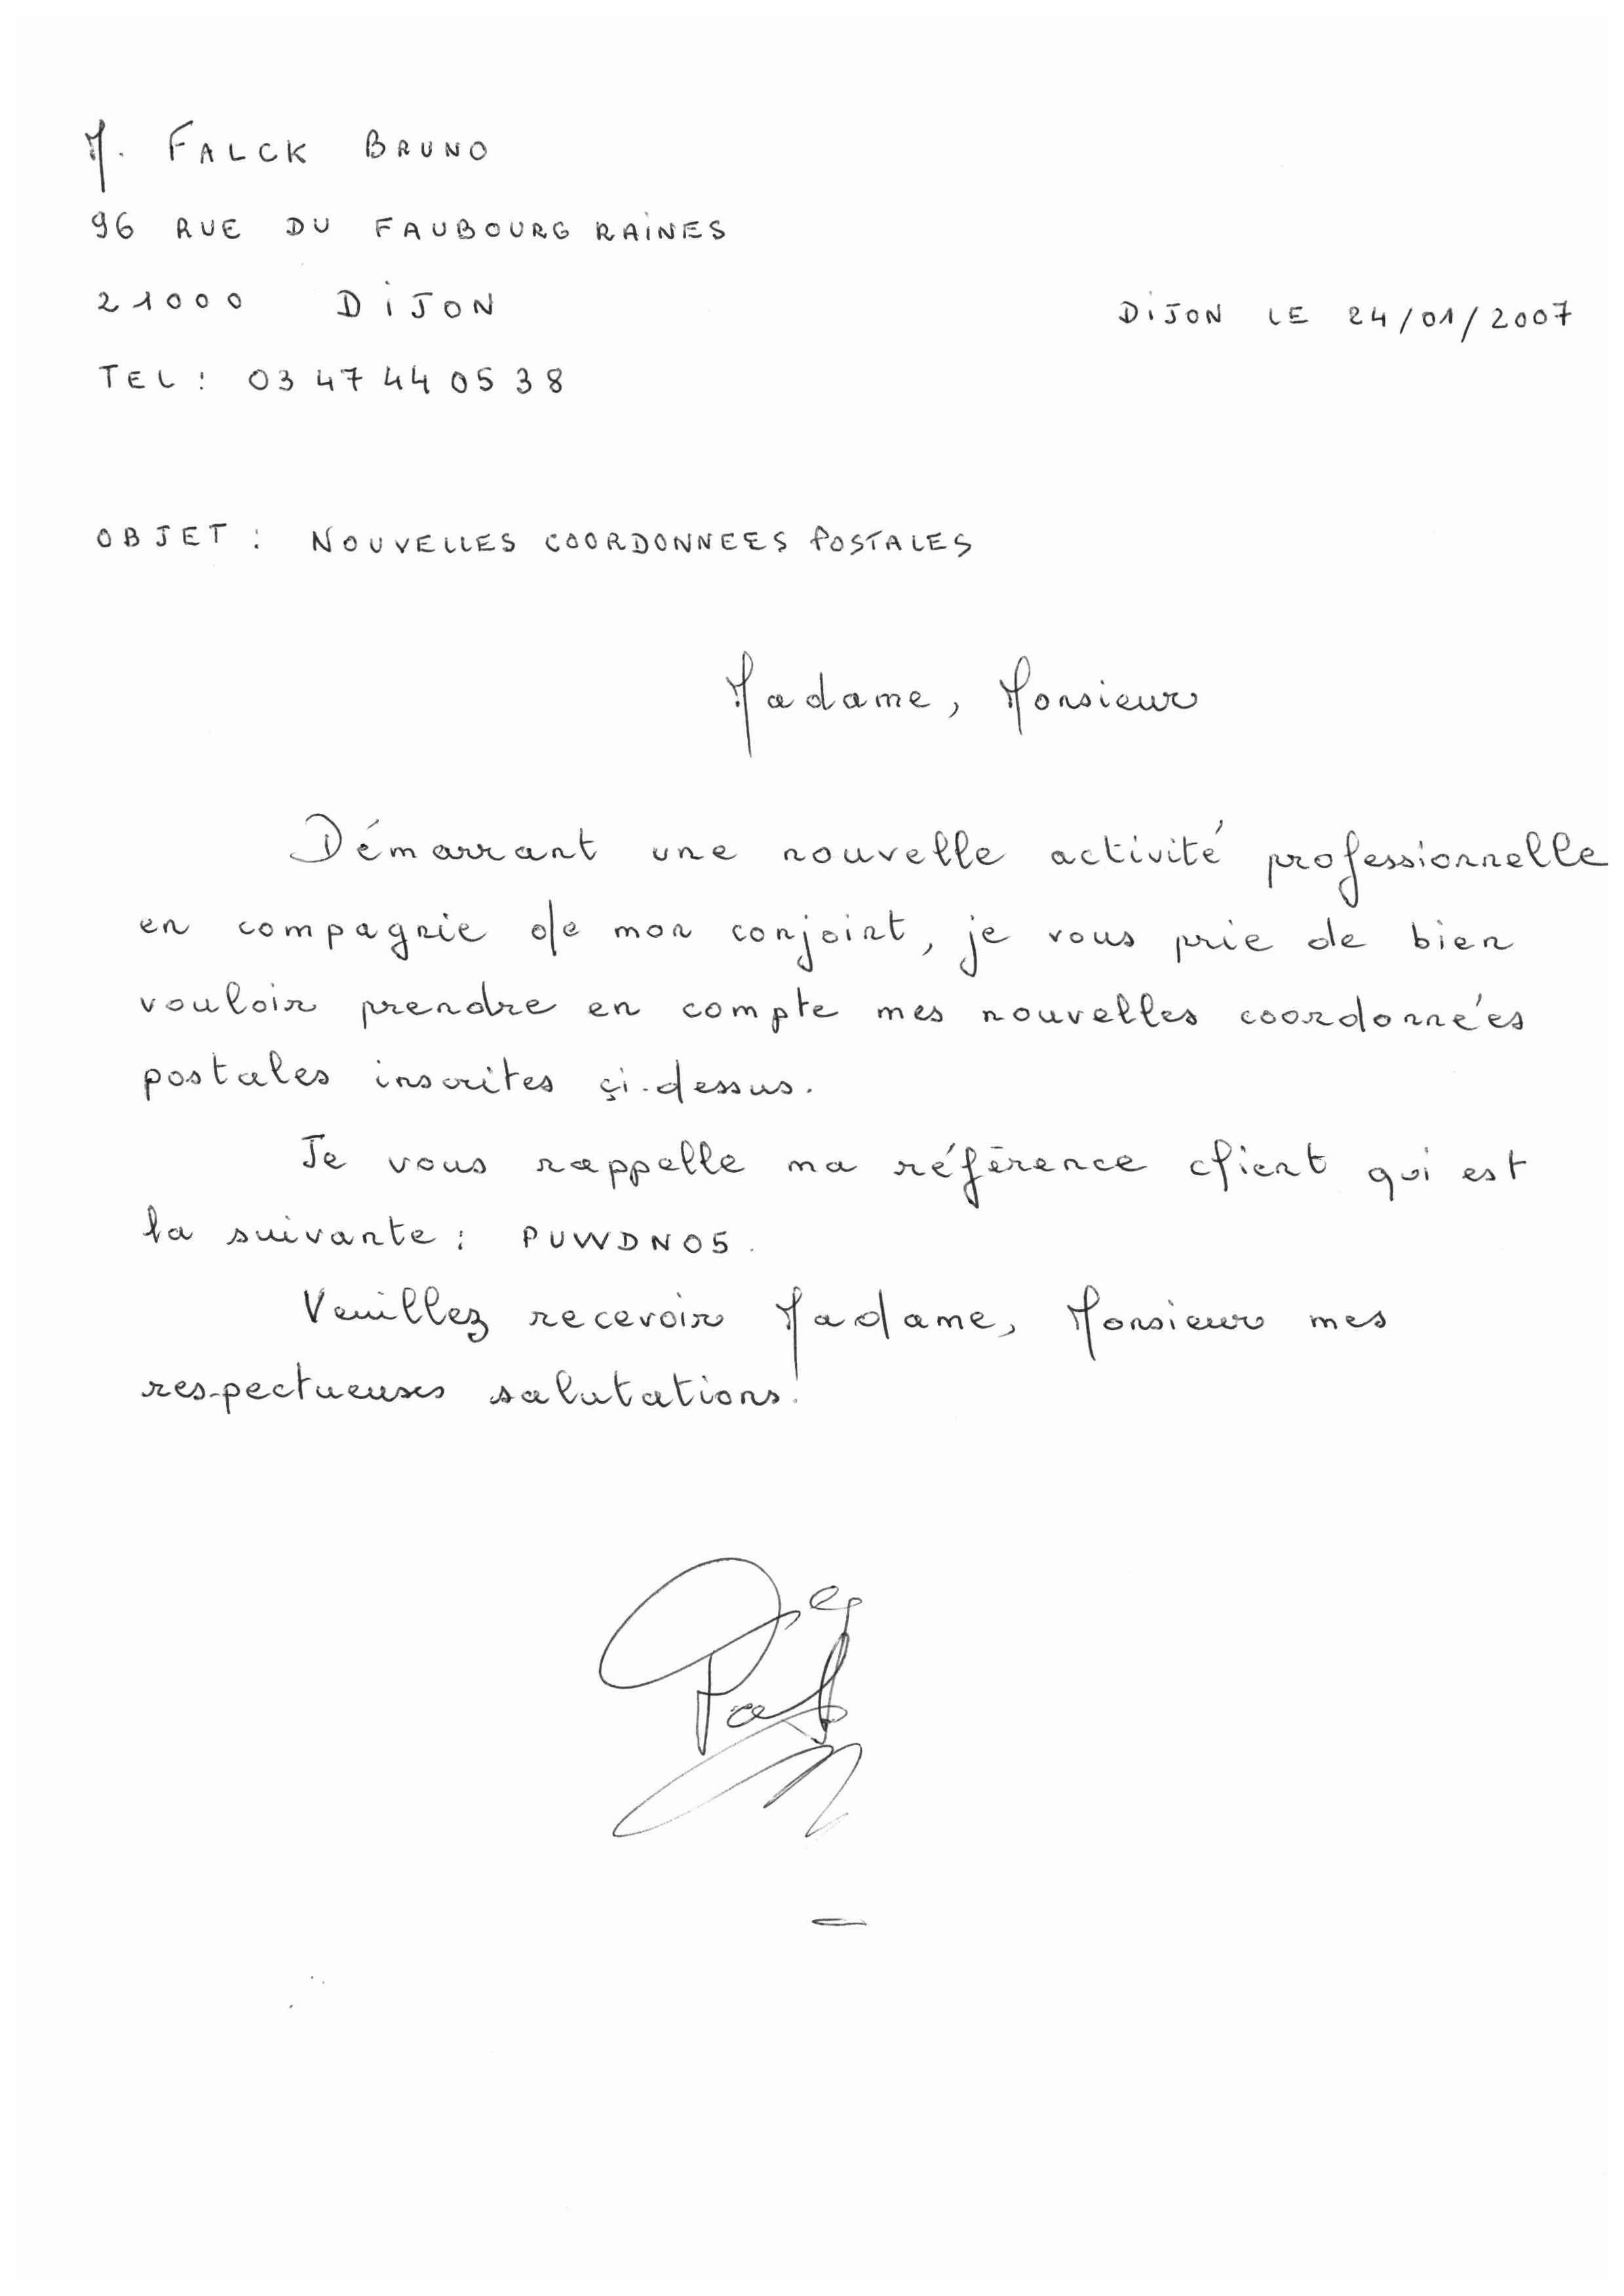 M. FALCK BRUNO
96 RUE DU FAUBOURG RAINES
21000 DIJON
DIJON LE 24/01/2007
TEL : 03 47 44 05 38
OBJET : NOUVELLES COORDONNEES POSTALES
Madame, Monsieur
Démarrant une nouvelle activité professionnelle
en compagnie de mon conjoint, je vous prie de bien
vouloir prendre en compte mes nouvelles coordonnées
postales inscrites çi-dessus.
Je vous rappelle ma référence client qui est
la suivante : PUWDN05.
Veuillez recevoir Madame, Monsieur mes
respectueuses salutations.